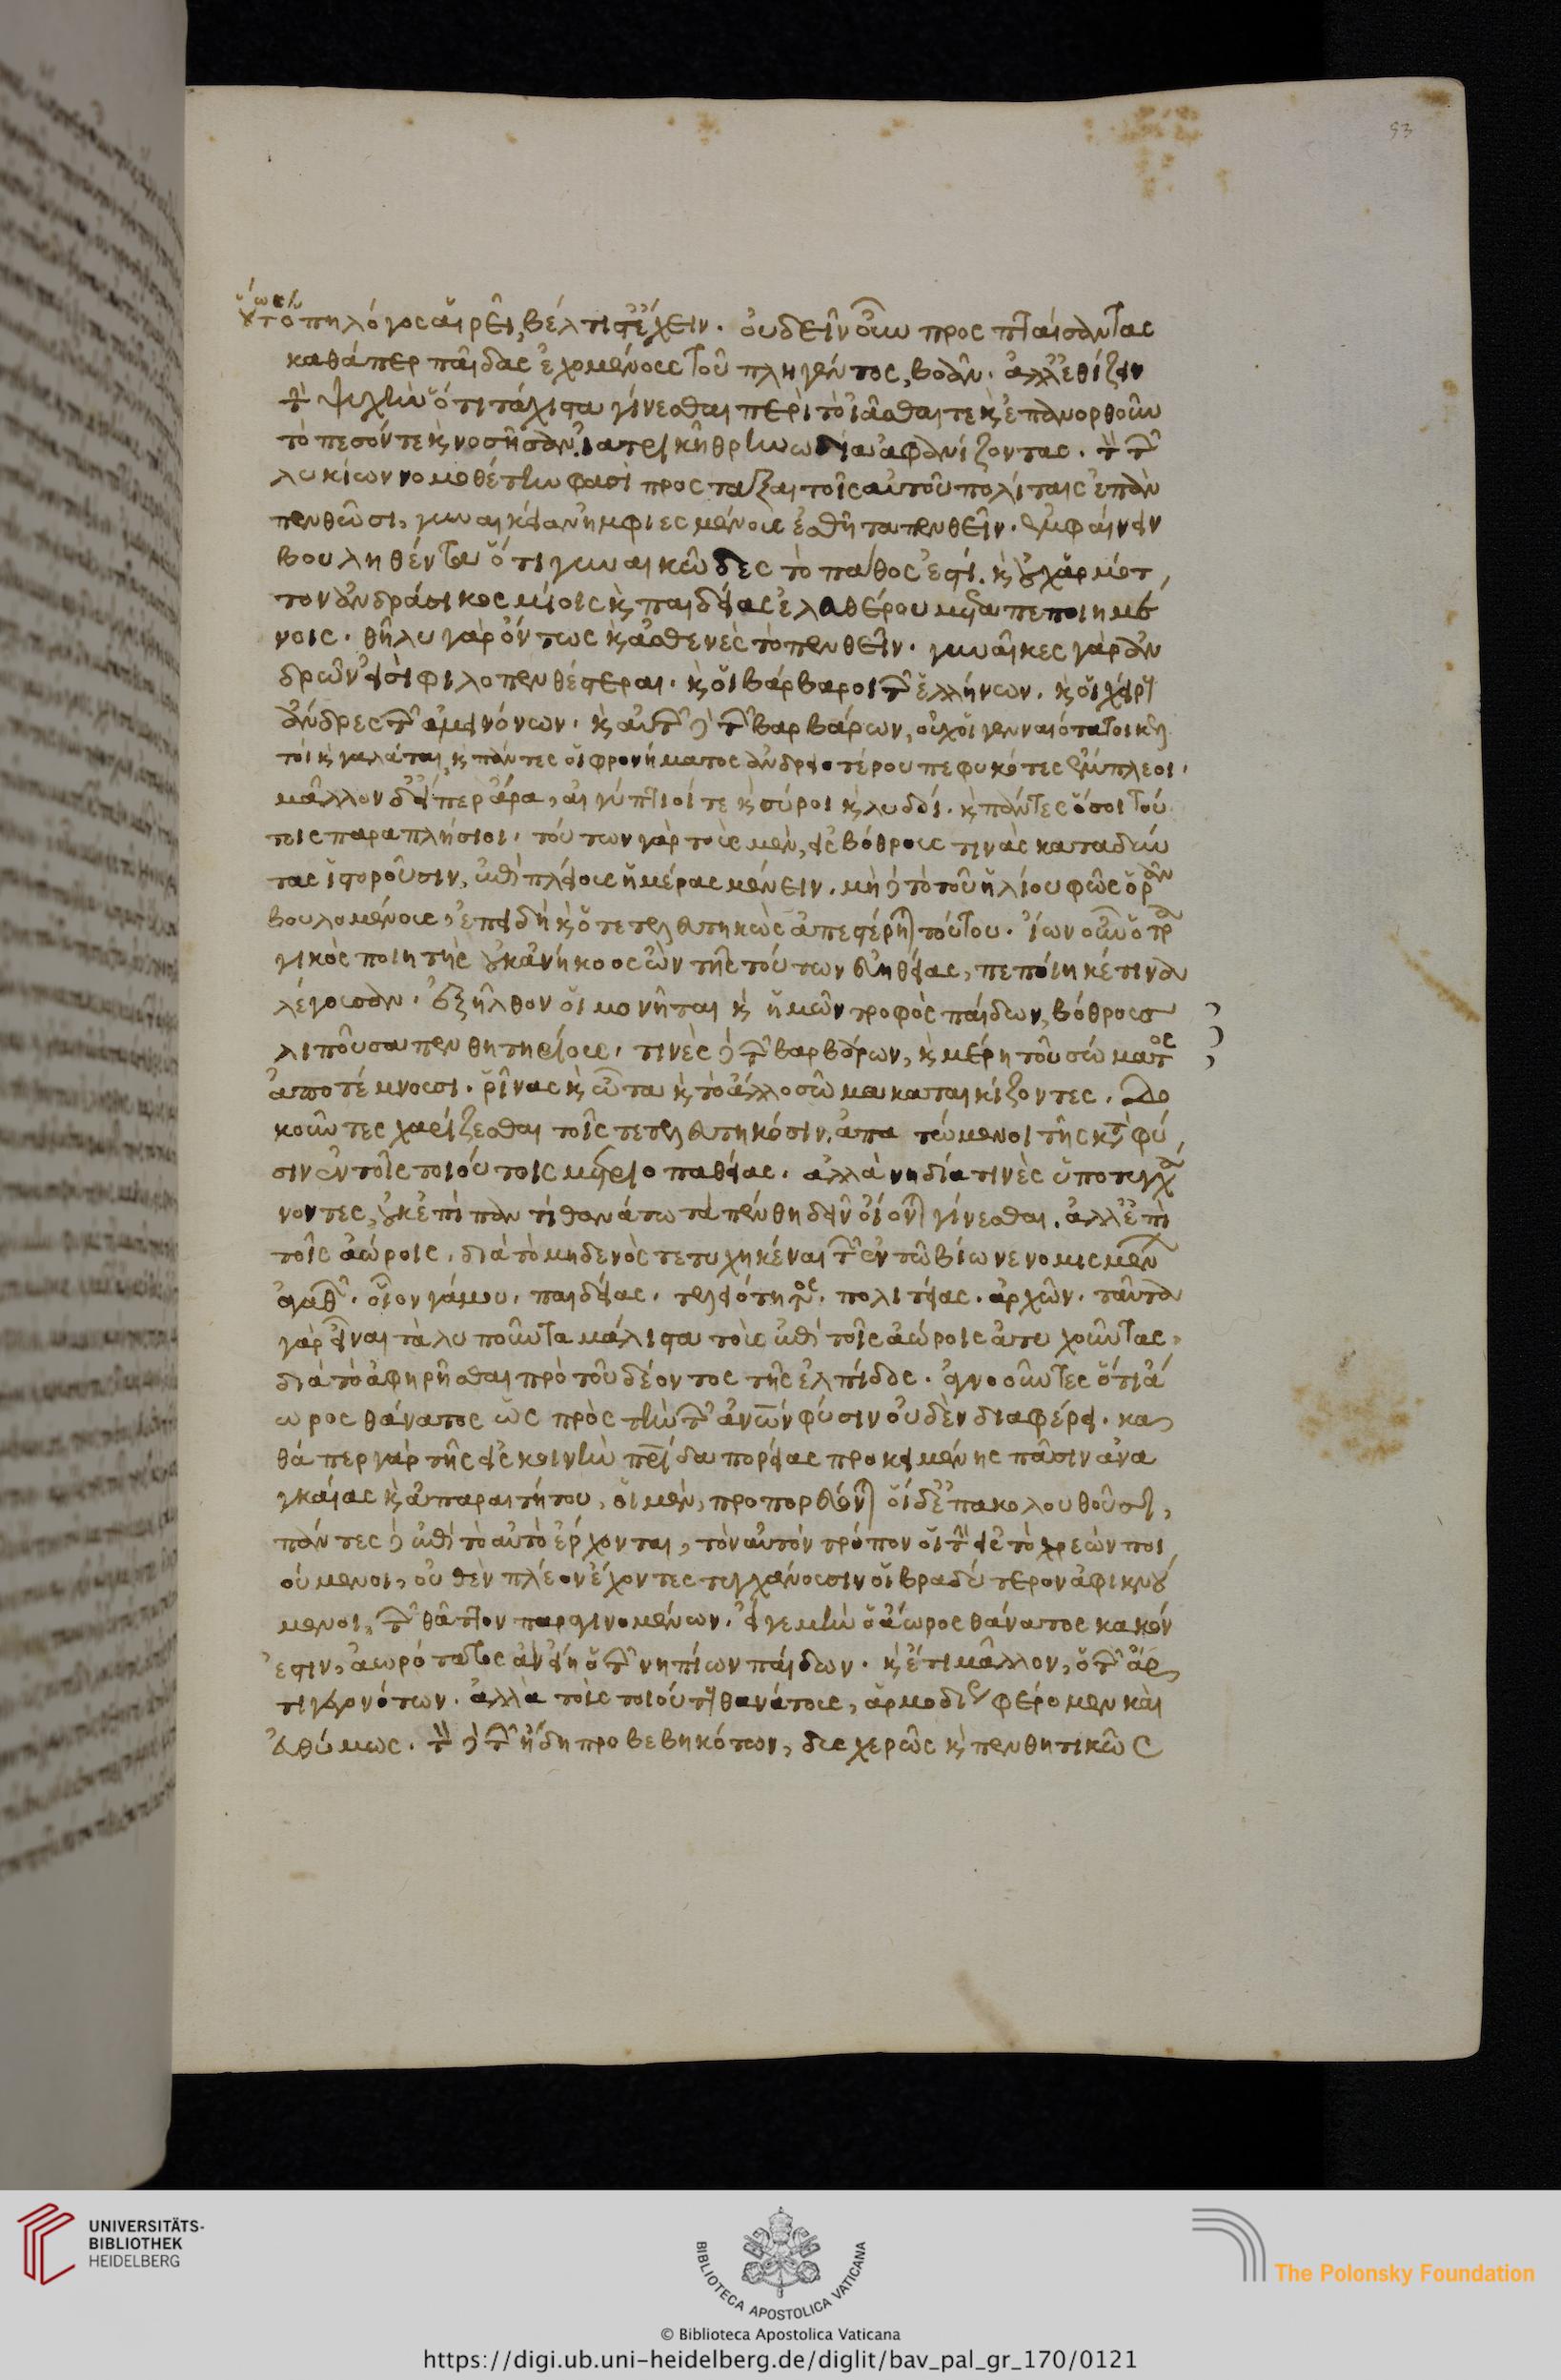 53
οὕτως
ὅπη λόγος αἱρεῖ, βέλτιστ' ἔχειν. οὐ δεῖν οὖν προσπταίσαντας
καθάπερ παῖδας ἐχομένους τοῦ πληγέντος, βοᾶν. ἀλλ' ἐθίζειν
τὴν ψυχὴν ὅτι τάχιστα γίνεσθαι περὶ τὸ ἰᾶσθαι τε καὶ ἐπανορθοῦν
τὸ πεσόν τε καὶ νοσῆσαν. ἰατρικῇ θρηνωδίαν ἀφανίζοντας. τὸν τῶν
λυκίων νομοθέτην φασὶ προστάξαι τοῖς αὐτοῦ πολίταις ἐπὰν
πενθῶσι, γυναικείαν ἠμφιεσμένους ἐσθῆτα πενθεῖν. ἐμφαίνειν
βουληθέντα ὅτι γυναικῶδες τὸ πάθος ἐστί. καὶ οὐχ ἁρμότ
τον ἀνδράσι κοσμίοις καὶ παιδείας ἐλευθέρου μεταπεποιημέ
νοις. θῆλυ γὰρ ὄντως καὶ ἀσθενὲς τὸ πενθεῖν. γυναῖκες γὰρ ἀν
δρῶν εἰσὶ φιλοπενθέστεραι. καὶ οἱ βάρβαροι τῶν ἑλλήνων. καὶ οἱ χείρους
ἄνδρες τῶν ἀμεινόνων. καὶ αὐτῶν δὲ τῶν βαρβάρων, οὐχ οἱ γενναιότατοι κελ
τοὶ καὶ γαλάται, καὶ πάντες οἱ φρονήματος ἀνδρειοτέρου πεφυκότες ἔμπλεοι.
μᾶλλον δ' εἴπερ ἄρα, αἰγύπτιοί τε καὶ σύροι καὶ λυδοί. καὶ πάντες ὅσοι τού
τοις παραπλήσιοι. τούτων γὰρ τοὺς μὲν, εἰς βόθρους τινὰς καταδύν
τας ἱστοροῦσιν, ἐπὶ πλείους ἡμέρας μένειν. μὴ δὲ τὸ τοῦ ἡλίου φῶς ὁρᾶν
βουλομένους, ἐπειδὴ καὶ ὁ τετελευτηκὼς ἀπεστέρηται τούτου. ἴων οὖν ὁ τρα
γικὸς ποιητὴς οὐκ ἀνήκοος ὢν τῆς τούτων εὐηθείας, πεποίηκέ τινα
λέγουσαν. ἐξῆλθον οἱ μονῆται καὶ ἡμῶν τροφὸς παίδων, βόθρους
λιποῦσα πενθητηρίους. τινὲς δὲ τῶν βαρβάρων, καὶ μέρη τοῦ σώματος
ἀποτέμνουσι. ῥῖνας καὶ ὦτα καὶ τὸ ἄλλο σῶμα καταικίζοντες. Δο
κοῦντες χαρίζεσθαι τοῖς τετελευτηκόσιν. ἀπαρτώμενοι τῆς κατὰ φύ
σιν ἐν τοῖς τοιούτοις μετριοπαθείας. ἀλλὰ νὴ δία τινὲς ὑποτυγχά
νοντες, οὐκ ἐπὶ παντὶ θανάτω τὰ πένθη δεῖν οἴονται γίνεσθαι. ἀλλ' ἐπὶ
τοῖς ἀώροις. διὰ τὸ μηδενὸς τετυχηκέναι τῶν ἐν τῶ βίω νενομισμένων
ἀγαθῶν. οἷον γάμου. παιδείας. τελειότητος. πολιτείας. ἀρχῶν. ταῦτα
γὰρ εἶναι τὰ λυποῦντα μάλιστα τοὺς ἐπὶ τοῖς ἀώροις ἀτυχοῦντας.
διὰ τὸ ἀφηρῆσθαι πρὸ τοῦ δέοντος τῆς ἐλπίδος. ἀγνοοῦντες ὅτι ἄ
ωρος θάνατος ὡς πρὸς τὴν τῶν ἀνων φύσιν οὐδὲν διαφέρει. κα
θάπερ γὰρ τῆς εἰς κοινὴν πρίδα πορείας προκειμένης πᾶσιν ἀνα
γκαίας καὶ ἀπαραιτήτου, οἱ μὲν, προπορεύονται οἱ δ' ἐπακολουθοῦσι,
πάντες δὲ ἐπὶ τὸ αὐτὸ ἔρχονται, τὸν αὐτὸν τρόπον οἱ τῶν εἰς τὸ χρεὼν ποι
ούμενοι, οὐθὲν πλέον ἔχοντες τυγχάνουσιν οἱ βραδύτερον ἀφικνού
μενοι, τῶν θᾶττον παραγινομένων. εἴ γε μὴν ὁ ἄωρος θάνατος κακόν
ἐστιν, ἀωρότατος ἂν εἴη ὁ τῶν νηπίων παίδων. καὶ ἔτι μᾶλλον, ὁ τῶν ἄρ
τι γεγονότων. ἀλλὰ τοὺς τοιούτων θανάτους, ῥαδίως φέρομεν καὶ
εὐθύμως. τοὺς δὲ τῶν ἤδη προβεβηκότων, δυσχερῶς καὶ πενθητικῶς
UNIVERSITÄTS-
BIBLIOTHEK
HEIDELBERG
BIBLIOTECA APOSTOLICA VATICANA
The Polonsky Foundation
© Biblioteca Apostolica Vaticana
https://digi.ub.uni-heidelberg.de/diglit/bav_pal_gr_170/0121